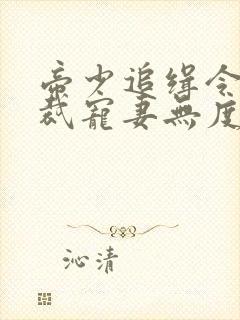 帝少追缉令
裁寵妻無度
沁清